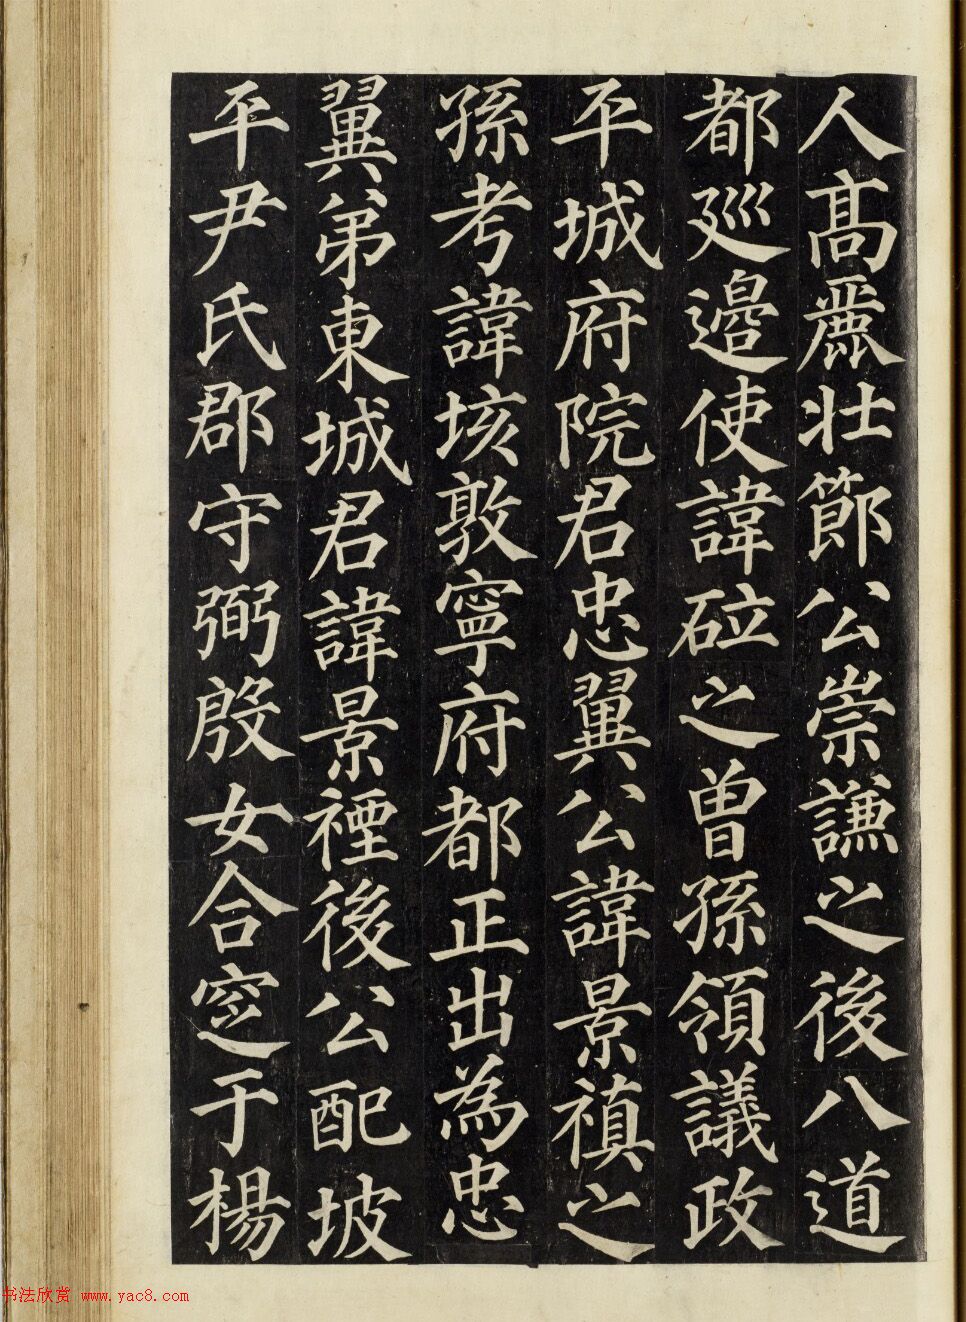 人高麗壯節公崇謙之後八道
都巡邊使諱砬之曾孫領議政
平城府院君忠翼公諱景禛之
孫考諱垓敦寧府都正出為忠
翼弟東城君諱景禋後公配坡
平尹氏郡守弼殷女合窆于楊
书法欣赏 www.yac8.com